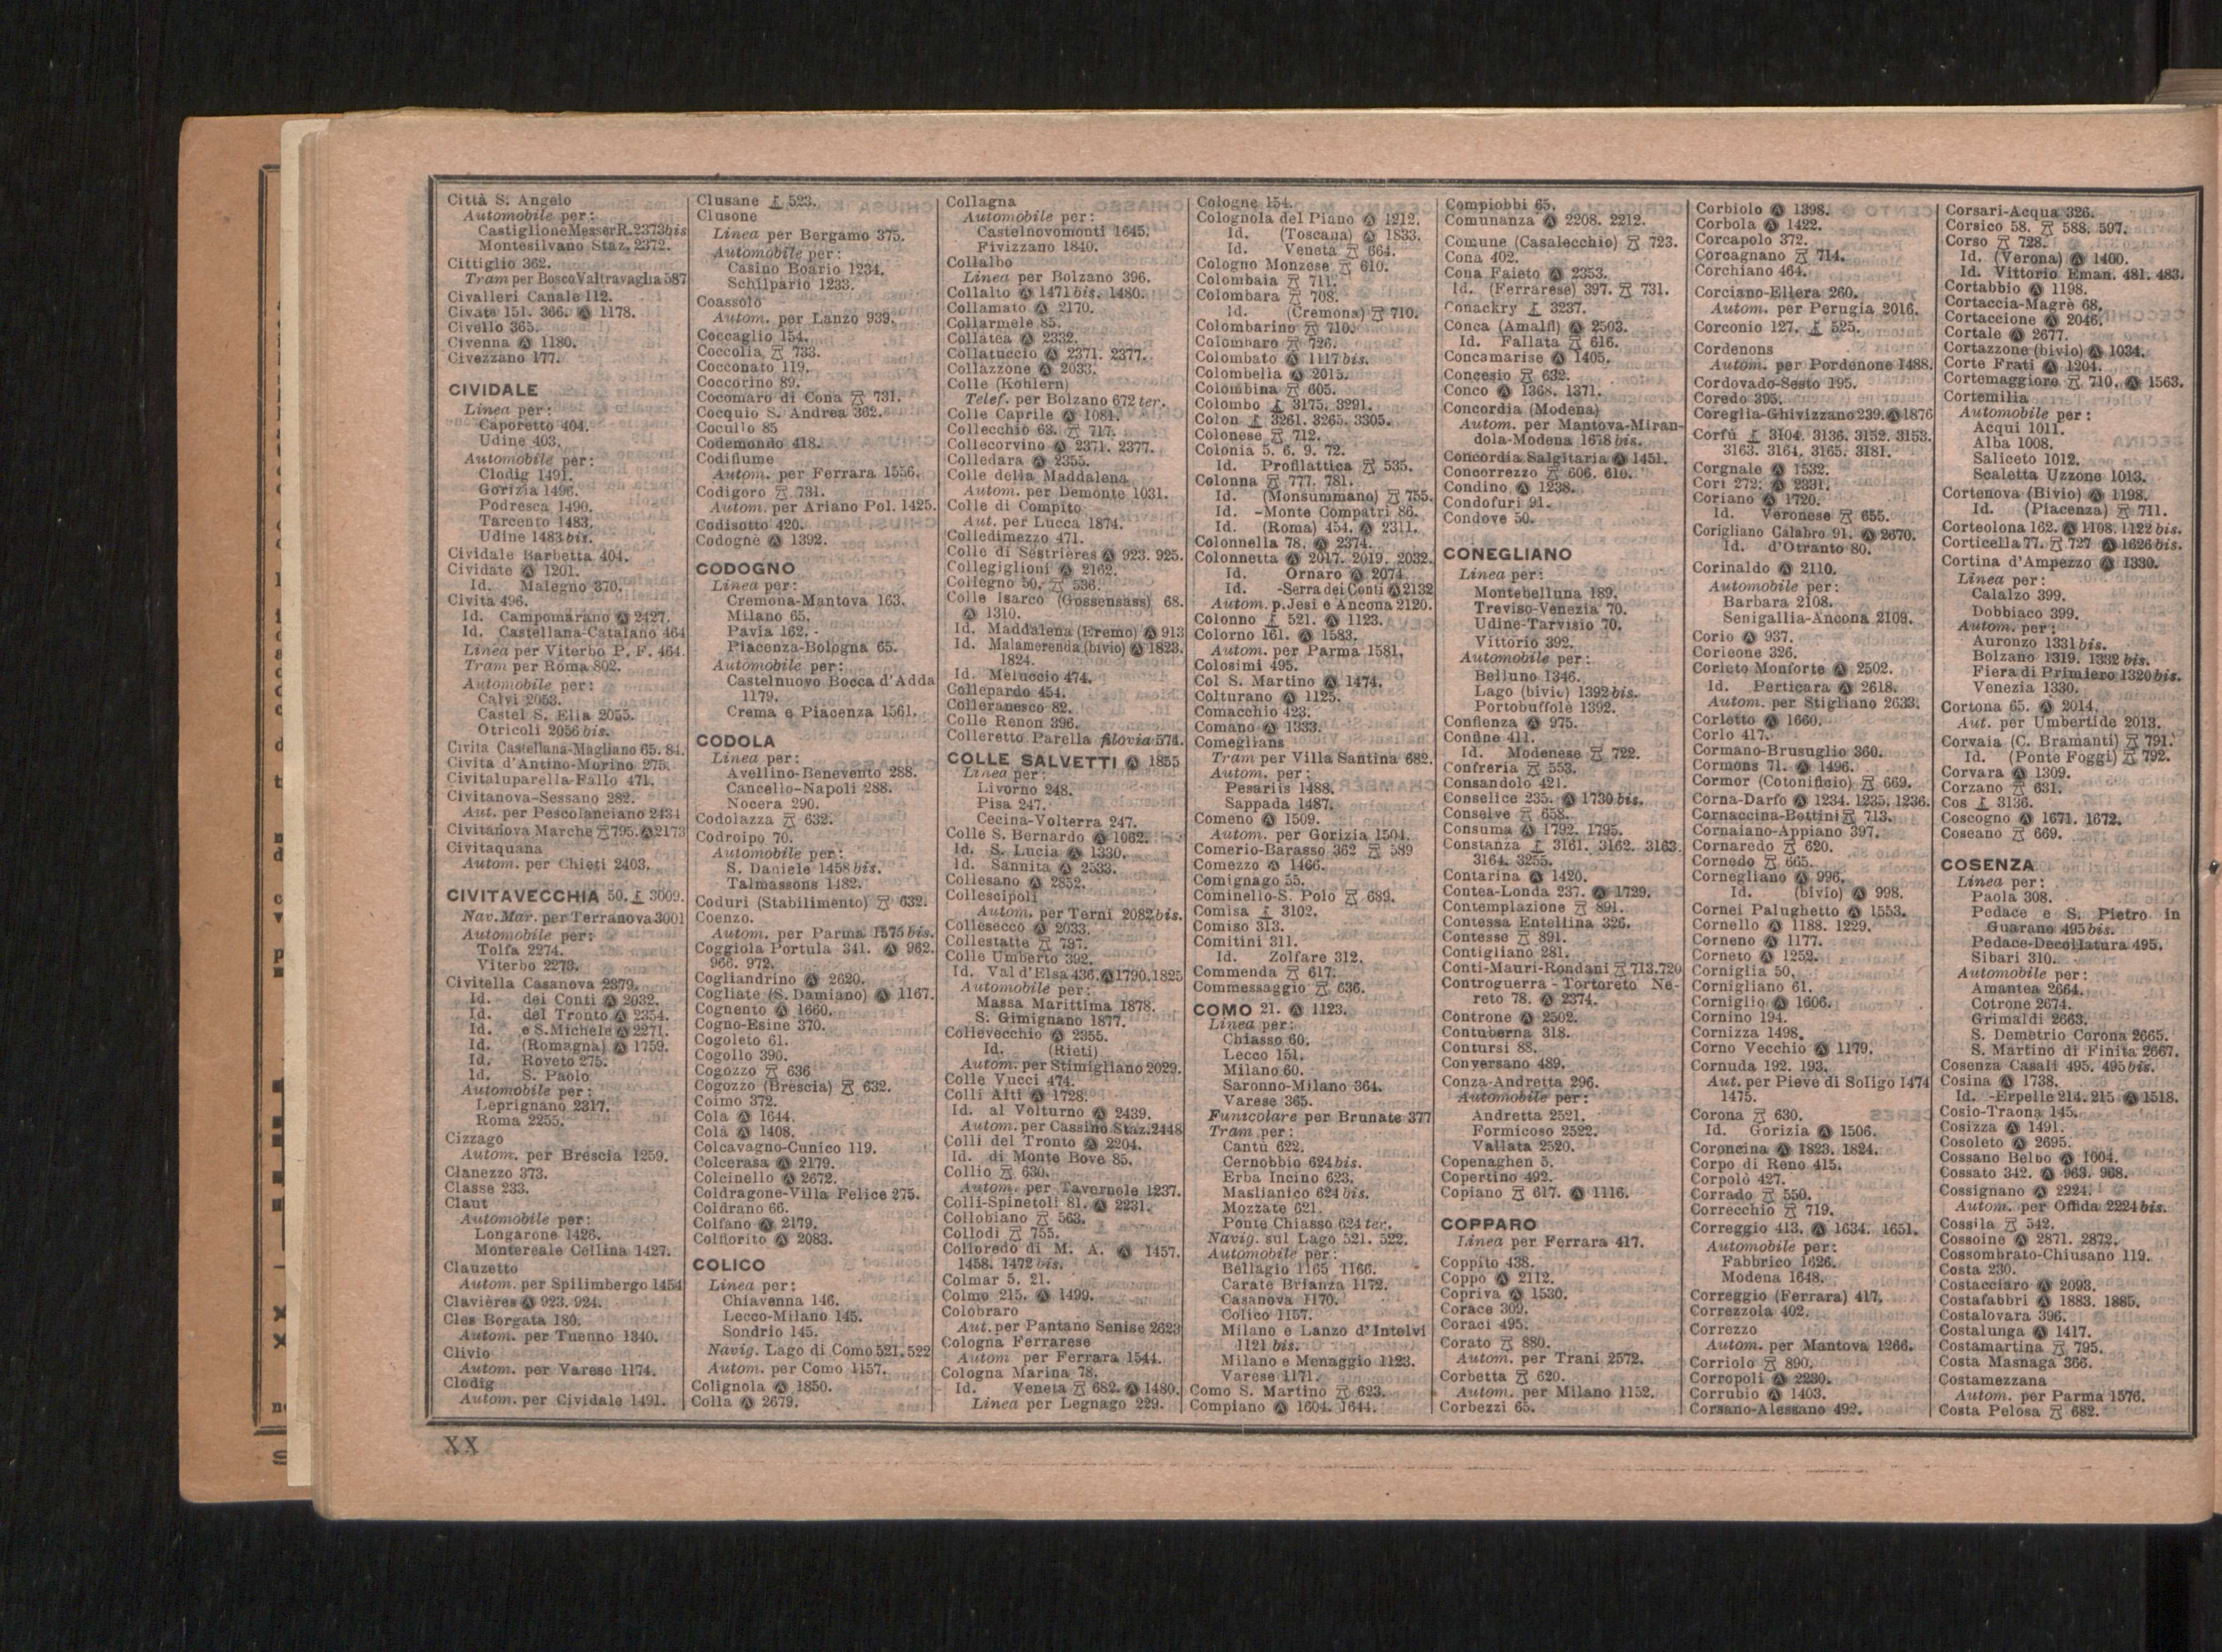 Città S. Angelo
Automobile per:
Castiglione Messer R. 2373 bis
Montesilvano Staz. 2372.
Cittiglio 362.
Tram per Bosco Valtravaglia 587
Civalleri Canale 112.
Civate 151. 366. Ⓐ 1178.
Civello 365.
Civenna Ⓐ 1180.
Civezzano 177.
CIVIDALE
Linea per:
Caporetto 404.
Udine 403.
Automobile per:
Clodig 1491.
Gorizia 1496.
Podresca 1490.
Tarcento 1483.
Udine 1483 bis.
Cividale Barbetta 404.
Cividate Ⓐ 1201.
Id. Malegno 370.
Civita 496.
Id. Campomarano Ⓐ 2427.
Id. Castellana-Catalano 464
Linea per Viterbo P. F. 464.
Tram per Roma 802.
Automobile per:
Calvi 2053.
Castel S. Elia 2055.
Otricoli 2056 bis.
Civita Castellana-Magliano 65. 84.
Civita d'Antino-Morino 275.
Civitaluparella-Fallo 471.
Civitanova-Sessano 282.
Aut. per Pescolanciano 2434
Civitanova Marche 795. Ⓐ 2173
Civitaquana
Autom. per Chieti 2403.
CIVITAVECCHIA 50. 3009.
Nav. Mar. per Terranova 3001
Automobile per:
Tolfa 2274.
Viterbo 2273.
Civitella Casanova 2379.
Id. dei Conti Ⓐ 2032.
Id. del Tronto Ⓐ 2354.
Id. e S. Michele Ⓐ 2271.
Id. (Romagna) Ⓐ 1759.
Id. Roveto 275.
Id. S. Paolo
Automobile per:
Leprignano 2317.
Roma 2255.
Cizzago
Autom. per Brescia 1259.
Clanezzo 373.
Classe 233.
Claut
Automobile per:
Longarone 1426.
Montereale Cellina 1427.
Clauzetto
Autom. per Spilimbergo 1454
Clavières Ⓐ 923. 924.
Cles Borgata 180.
Autom. per Tuenno 1340.
Clivio
Autom. per Varese 1174.
Clodig
Autom. per Cividale 1491.
Clusane 523.
Clusone
Linea per Bergamo 375.
Automobile per:
Casino Boario 1234.
Schilpario 1233.
Coassolo
Autom. per Lanzo 939.
Coccaglio 154.
Coccolia 733.
Cocconato 119.
Coccorino 89.
Cocomaro di Cona 731.
Cocquio S. Andrea 362.
Cocullo 85
Codemondo 418.
Codifiume
Autom. per Ferrara 1556.
Codigoro 731.
Autom. per Ariano Pol. 1425.
Codisotto 420.
Codognè Ⓐ 1392.
CODOGNO
Linea per:
Cremona-Mantova 163.
Milano 65.
Pavia 162.
Piacenza-Bologna 65.
Automobile per:
Castelnuovo Bocca d'Adda
1179.
Crema e Piacenza 1561.
CODOLA
Linea per:
Avellino-Benevento 288.
Cancello-Napoli 288.
Nocera 290.
Codolazza 632.
Codroipo 70.
Automobile per:
S. Daniele 1458 bis.
Talmassons 1482.
Coduri (Stabilimento) 632.
Coenzo.
Autom. per Parma 1575 bis.
Coggiola Portula 341. Ⓐ 962.
966. 972.
Cogliandrino Ⓐ 2620.
Cogliate (S. Damiano) Ⓐ 1167.
Cognento Ⓐ 1660.
Cogno-Esine 370.
Cogoleto 61.
Cogollo 390.
Cogozzo 636
Cogozzo (Brescia) 632.
Coimo 372.
Cola Ⓐ 1644.
Colà Ⓐ 1408.
Colcavagno-Cunico 119.
Colcerasa Ⓐ 2179.
Colcinello Ⓐ 2672.
Coldragone-Villa Felice 275.
Coldrano 66.
Colfano Ⓐ 2179.
Colfiorito Ⓐ 2083.
COLICO
Linea per:
Chiavenna 146.
Lecco-Milano 145.
Sondrio 145.
Navig. Lago di Como 521. 522
Autom. per Como 1157.
Colignola Ⓐ 1850.
Colla Ⓐ 2679.
Collagna
Automobile per:
Castelnovomonti 1645.
Fivizzano 1840.
Collalbo
Linea per Bolzano 396.
Collalto Ⓐ 1471 bis. 1480.
Collamato Ⓐ 2170.
Collarmele 85.
Collatea Ⓐ 2332.
Collatuccio Ⓐ 2371. 2377.
Collazzone Ⓐ 2033.
Colle (Kohlern)
Telef. per Bolzano 672 ter.
Colle Caprile Ⓐ 1084.
Collecchio 63. 717.
Collecorvino Ⓐ 2371. 2377.
Colledara Ⓐ 2355.
Colle della Maddalena
Autom. per Demonte 1031.
Colle di Compito
Aut. per Lucca 1874.
Colledimezzo 471.
Colle di Sestrières Ⓐ 923. 925.
Collegiglioni Ⓐ 2162.
Collegno 50. 536.
Colle Isarco (Gossensass) 68.
Ⓐ 1310.
Id. Maddalena (Eremo) Ⓐ 913
Id. Malamerenda (bivio) Ⓐ 1823.
1824.
Id. Meluccio 474.
Collepardo 454.
Colleranesco 82.
Colle Renon 396.
Colleretto Parella filovia 574.
COLLE SALVETTI Ⓐ 1855
Linea per:
Livorno 248.
Pisa 247.
Cecina-Volterra 247.
Colle S. Bernardo Ⓐ 1062.
Id. S. Lucia Ⓐ 1330.
Id. Sannita Ⓐ 2533.
Collesano Ⓐ 2852.
Collescipoli
Autom. per Terni 2082 bis.
Collesecco Ⓐ 2033.
Collestatte 797.
Colle Umberto 392.
Id. Val d'Elsa 436. Ⓐ 1790. 1825
Automobile per:
Massa Marittima 1878.
S. Gimignano 1877.
Collevecchio Ⓐ 2355.
Id. (Rieti)
Autom. per Stimigliano 2029.
Colle Vucci 474.
Colli Alti Ⓐ 1728.
Id. al Volturno Ⓐ 2439.
Autom. per Cassino Staz. 2448
Colli del Tronto Ⓐ 2204.
Id. di Monte Bove 85.
Collio 630.
Autom. per Tavernole 1237.
Colli-Spinetoli 81. Ⓐ 2231.
Collobiano 563.
Collodi 755.
Colloredo di M. A. Ⓐ 1457.
1458. 1472 bis.
Colmar 5. 21.
Colmo 215. Ⓐ 1499.
Colobraro
Aut. per Pantano Senise 2623
Cologna Ferrarese
Autom per Ferrara 1544.
Cologna Marina 78.
Id. Veneta 682. Ⓐ 1480.
Linea per Legnago 229.
Cologne 154.
Colognola del Piano Ⓐ 1212.
Id. (Toscana) Ⓐ 1833.
Id. Veneta 664.
Cologno Monzese 610.
Colombaia 711.
Colombara 708.
Id. (Cremona) 710.
Colombarino 710.
Colombaro 726.
Colombato Ⓐ 1117 bis.
Colombella Ⓐ 2015.
Colombina 605.
Colombo 3175. 3291.
Colon 3261. 3265. 3305.
Colonese 712.
Colonia 5. 6. 9. 72.
Id. Profilattica 535.
Colonna 777. 781.
Id. (Monsummano) 755.
Id. -Monte Compatri 86.
Id. (Roma) 454. Ⓐ 2311.
Colonnella 78. Ⓐ 2374.
Colonnetta Ⓐ 2017. 2019. 2032.
Id. Ornaro Ⓐ 2074.
Id. -Serra dei Conti Ⓐ 2132
Autom. p. Jesi e Ancona 2120.
Colonno 521. Ⓐ 1123.
Colorno 161. Ⓐ 1583.
Autom. per Parma 1581.
Colosimi 495.
Col S. Martino Ⓐ 1474.
Colturano Ⓐ 1125.
Comacchio 423.
Comano Ⓐ 1333.
Comeglians
Tram per Villa Santina 682.
Autom. per:
Pesariis 1488.
Sappada 1487.
Comeno Ⓐ 1509.
Autom. per Gorizia 1504.
Comerio-Barasso 362 589
Comezzo Ⓐ 1466.
Comignago 55.
Cominello-S. Polo 689.
Comisa 3102.
Comiso 313.
Comitini 311.
Id. Zolfare 312.
Commenda 617.
Commessaggio 636.
COMO 21. Ⓐ 1123.
Linea per:
Chiasso 60.
Lecco 151.
Milano 60.
Saronno-Milano 364.
Varese 365.
Funicolare per Brunate 377
Tram per:
Cantù 622.
Cernobbio 624 bis.
Erba Incino 623.
Maslianico 624 bis.
Mozzate 621.
Ponte Chiasso 624 ter.
Navig. sul Lago 521. 522.
Automobile per:
Bellagio 1165 1166.
Carate Brianza 1172.
Casanova 1170.
Colico 1157.
Milano e Lanzo d'Intelvi
1121 bis.
Milano e Menaggio 1123.
Varese 1171.
Como S. Martino 623.
Compiano Ⓐ 1604. 1644.
Compiobbi 65.
Comunanza Ⓐ 2208. 2212.
Comune (Casalecchio) 723.
Cona 402.
Cona Faieto Ⓐ 2353.
Id. (Ferrarese) 397. 731.
Conackry 3237.
Conca (Amalfi) Ⓐ 2503.
Id. Fallata 616.
Concamarise Ⓐ 1405.
Concesio 632.
Conco Ⓐ 1368. 1371.
Concordia (Modena)
Autom. per Mantova-Miran-
dola-Modena 1678 bis.
Concordia Salgitaria Ⓐ 1451.
Concorrezzo 606. 610.
Condino Ⓐ 1238.
Condofuri 91.
Condove 50.
CONEGLIANO
Linea per:
Montebelluna 189.
Treviso-Venezia 70.
Udine-Tarvisio 70.
Vittorio 392.
Automobile per:
Belluno 1346.
Lago (bivio) 1392 bis.
Portobuffolè 1392.
Confienza Ⓐ 975.
Confine 411.
Id. Modenese 722.
Confreria 553.
Consandolo 421.
Conselice 235. Ⓐ 1730 bis.
Conselve 658.
Consuma Ⓐ 1792. 1795.
Constanza 3161. 3162. 3163.
3164. 3255.
Contarina Ⓐ 1420.
Contea-Londa 237. Ⓐ 1729.
Contemplazione 891.
Contessa Entellina 326.
Contesse 891.
Contigliano 281.
Conti-Mauri-Rondani 713. 720
Controguerra - Tortoreto Ne-
reto 78. Ⓐ 2374.
Controne Ⓐ 2502.
Contuberna 318.
Contursi 88.
Conversano 489.
Conza-Andretta 296.
Automobile per:
Andretta 2521.
Formicoso 2522.
Vallata 2520.
Copenaghen 5.
Copertino 492.
Copiano 617. Ⓐ 1116.
COPPARO
Linea per Ferrara 417.
Coppito 438.
Coppo Ⓐ 2112.
Copriva Ⓐ 1530.
Corace 309.
Coraci 495.
Corato 880.
Autom. per Trani 2572.
Corbetta 620.
Autom. per Milano 1152.
Corbezzi 65.
Corbiolo Ⓐ 1398.
Corbola Ⓐ 1422.
Corcapolo 372.
Corcagnano 714.
Corchiano 464.
Corciano-Ellera 260.
Autom. per Perugia 2016.
Corconio 127. 525.
Cordenons
Autom. per Pordenone 1488.
Cordovado-Sesto 195.
Coredo 395.
Coreglia-Ghivizzano 239. Ⓐ 1876
Corfù 3104. 3136. 3152. 3153.
3163. 3164. 3165. 3181.
Corgnale Ⓐ 1532.
Cori 272. Ⓐ 2331.
Coriano Ⓐ 1720.
Id. Veronese 655.
Corigliano Calabro 91. Ⓐ 2670.
Id. d'Otranto 80.
Corinaldo Ⓐ 2110.
Automobile per:
Barbara 2108.
Senigallia-Ancona 2109.
Corio Ⓐ 937.
Corleone 326.
Corleto Monforte Ⓐ 2502.
Id. Perticara Ⓐ 2618.
Autom. per Stigliano 2633.
Corletto Ⓐ 1660.
Corlo 417.
Cormano-Brusuglio 360.
Cormons 71. Ⓐ 1496.
Cormor (Cotonificio) 669.
Corna-Darfo Ⓐ 1234. 1235. 1236.
Cornaccina-Bottini 713.
Cornaiano-Appiano 397.
Cornaredo 620.
Cornedo 665.
Cornegliano Ⓐ 996.
Id. (bivio) Ⓐ 998.
Cornei Palughetto Ⓐ 1553.
Cornello Ⓐ 1188. 1229.
Corneno Ⓐ 1177.
Corneto Ⓐ 1252.
Corniglia 50.
Cornigliano 61.
Corniglio Ⓐ 1606.
Cornino 194.
Cornizza 1498.
Corno Vecchio Ⓐ 1179.
Cornuda 192. 193.
Aut. per Pieve di Soligo 1474
1475.
Corona 630.
Id. Gorizia Ⓐ 1506.
Coroncina Ⓐ 1823. 1824.
Corpo di Reno 415.
Corpolò 427.
Corrado 550.
Correcchio 719.
Correggio 413. Ⓐ 1634. 1651.
Automobile per:
Fabbrico 1626.
Modena 1648.
Correggio (Ferrara) 417.
Correzzola 402.
Correzzo
Autom. per Mantova 1266.
Corriolo 890.
Corropoli Ⓐ 2230.
Corrubio Ⓐ 1403.
Corsano-Alessano 492.
Corsari-Acqua 326.
Corsico 58. 588. 597.
Corso 728.
Id. (Verona) Ⓐ 1400.
Id. Vittorio Eman. 481. 483.
Cortabbio Ⓐ 1198.
Cortaccia-Magrè 68.
Cortaccione Ⓐ 2046.
Cortale Ⓐ 2677.
Cortazzone (bivio) Ⓐ 1034.
Corte Frati Ⓐ 1204.
Cortemaggiore 710. Ⓐ 1563.
Cortemilia
Automobile per:
Acqui 1011.
Alba 1008.
Saliceto 1012.
Scaletta Uzzone 1013.
Cortenova (Bivio) Ⓐ 1198.
Id. (Piacenza) 711.
Corteolona 162. Ⓐ 1108. 1122 bis.
Corticella 77. 727 Ⓐ 1626 bis.
Cortina d'Ampezzo Ⓐ 1330.
Linea per:
Calalzo 399.
Dobbiaco 399.
Autom. per:
Auronzo 1331 bis.
Bolzano 1319. 1332 bis.
Fiera di Primiero 1320 bis.
Venezia 1330.
Cortona 65. Ⓐ 2014.
Aut. per Umbertide 2013.
Corvaia (C. Bramanti) 791.
Id. (Ponte Foggi) 792.
Corvara Ⓐ 1309.
Corzano 631.
Cos 3136.
Coscogno Ⓐ 1671. 1672.
Coseano 669.
COSENZA
Linea per:
Paola 308.
Pedace e S. Pietro in
Guarano 495 bis.
Pedace-Decollatura 495.
Sibari 310.
Automobile per:
Amantea 2664.
Cotrone 2674.
Grimaldi 2663.
S. Demetrio Corona 2665.
S. Martino di Finita 2667.
Cosenza Casali 495. 495 bis.
Cosina Ⓐ 1738.
Id. -Erpelle 214. 215 Ⓐ 1518.
Cosio-Traona 145.
Cosizza Ⓐ 1491.
Cosoleto Ⓐ 2695.
Cossano Belbo Ⓐ 1004.
Cossato 342. Ⓐ 963. 968.
Cossignano Ⓐ 2224.
Autom. per Offida 2224 bis.
Cossila 542.
Cossoine Ⓐ 2871. 2872.
Cossombrato-Chiusano 119.
Costa 230.
Costacciaro Ⓐ 2093.
Costafabbri Ⓐ 1883. 1885.
Costalovara 396.
Costalunga Ⓐ 1417.
Costamartina 795.
Costa Masnaga 366.
Costamezzana
Autom. per Parma 1576.
Costa Pelosa 682.
XX